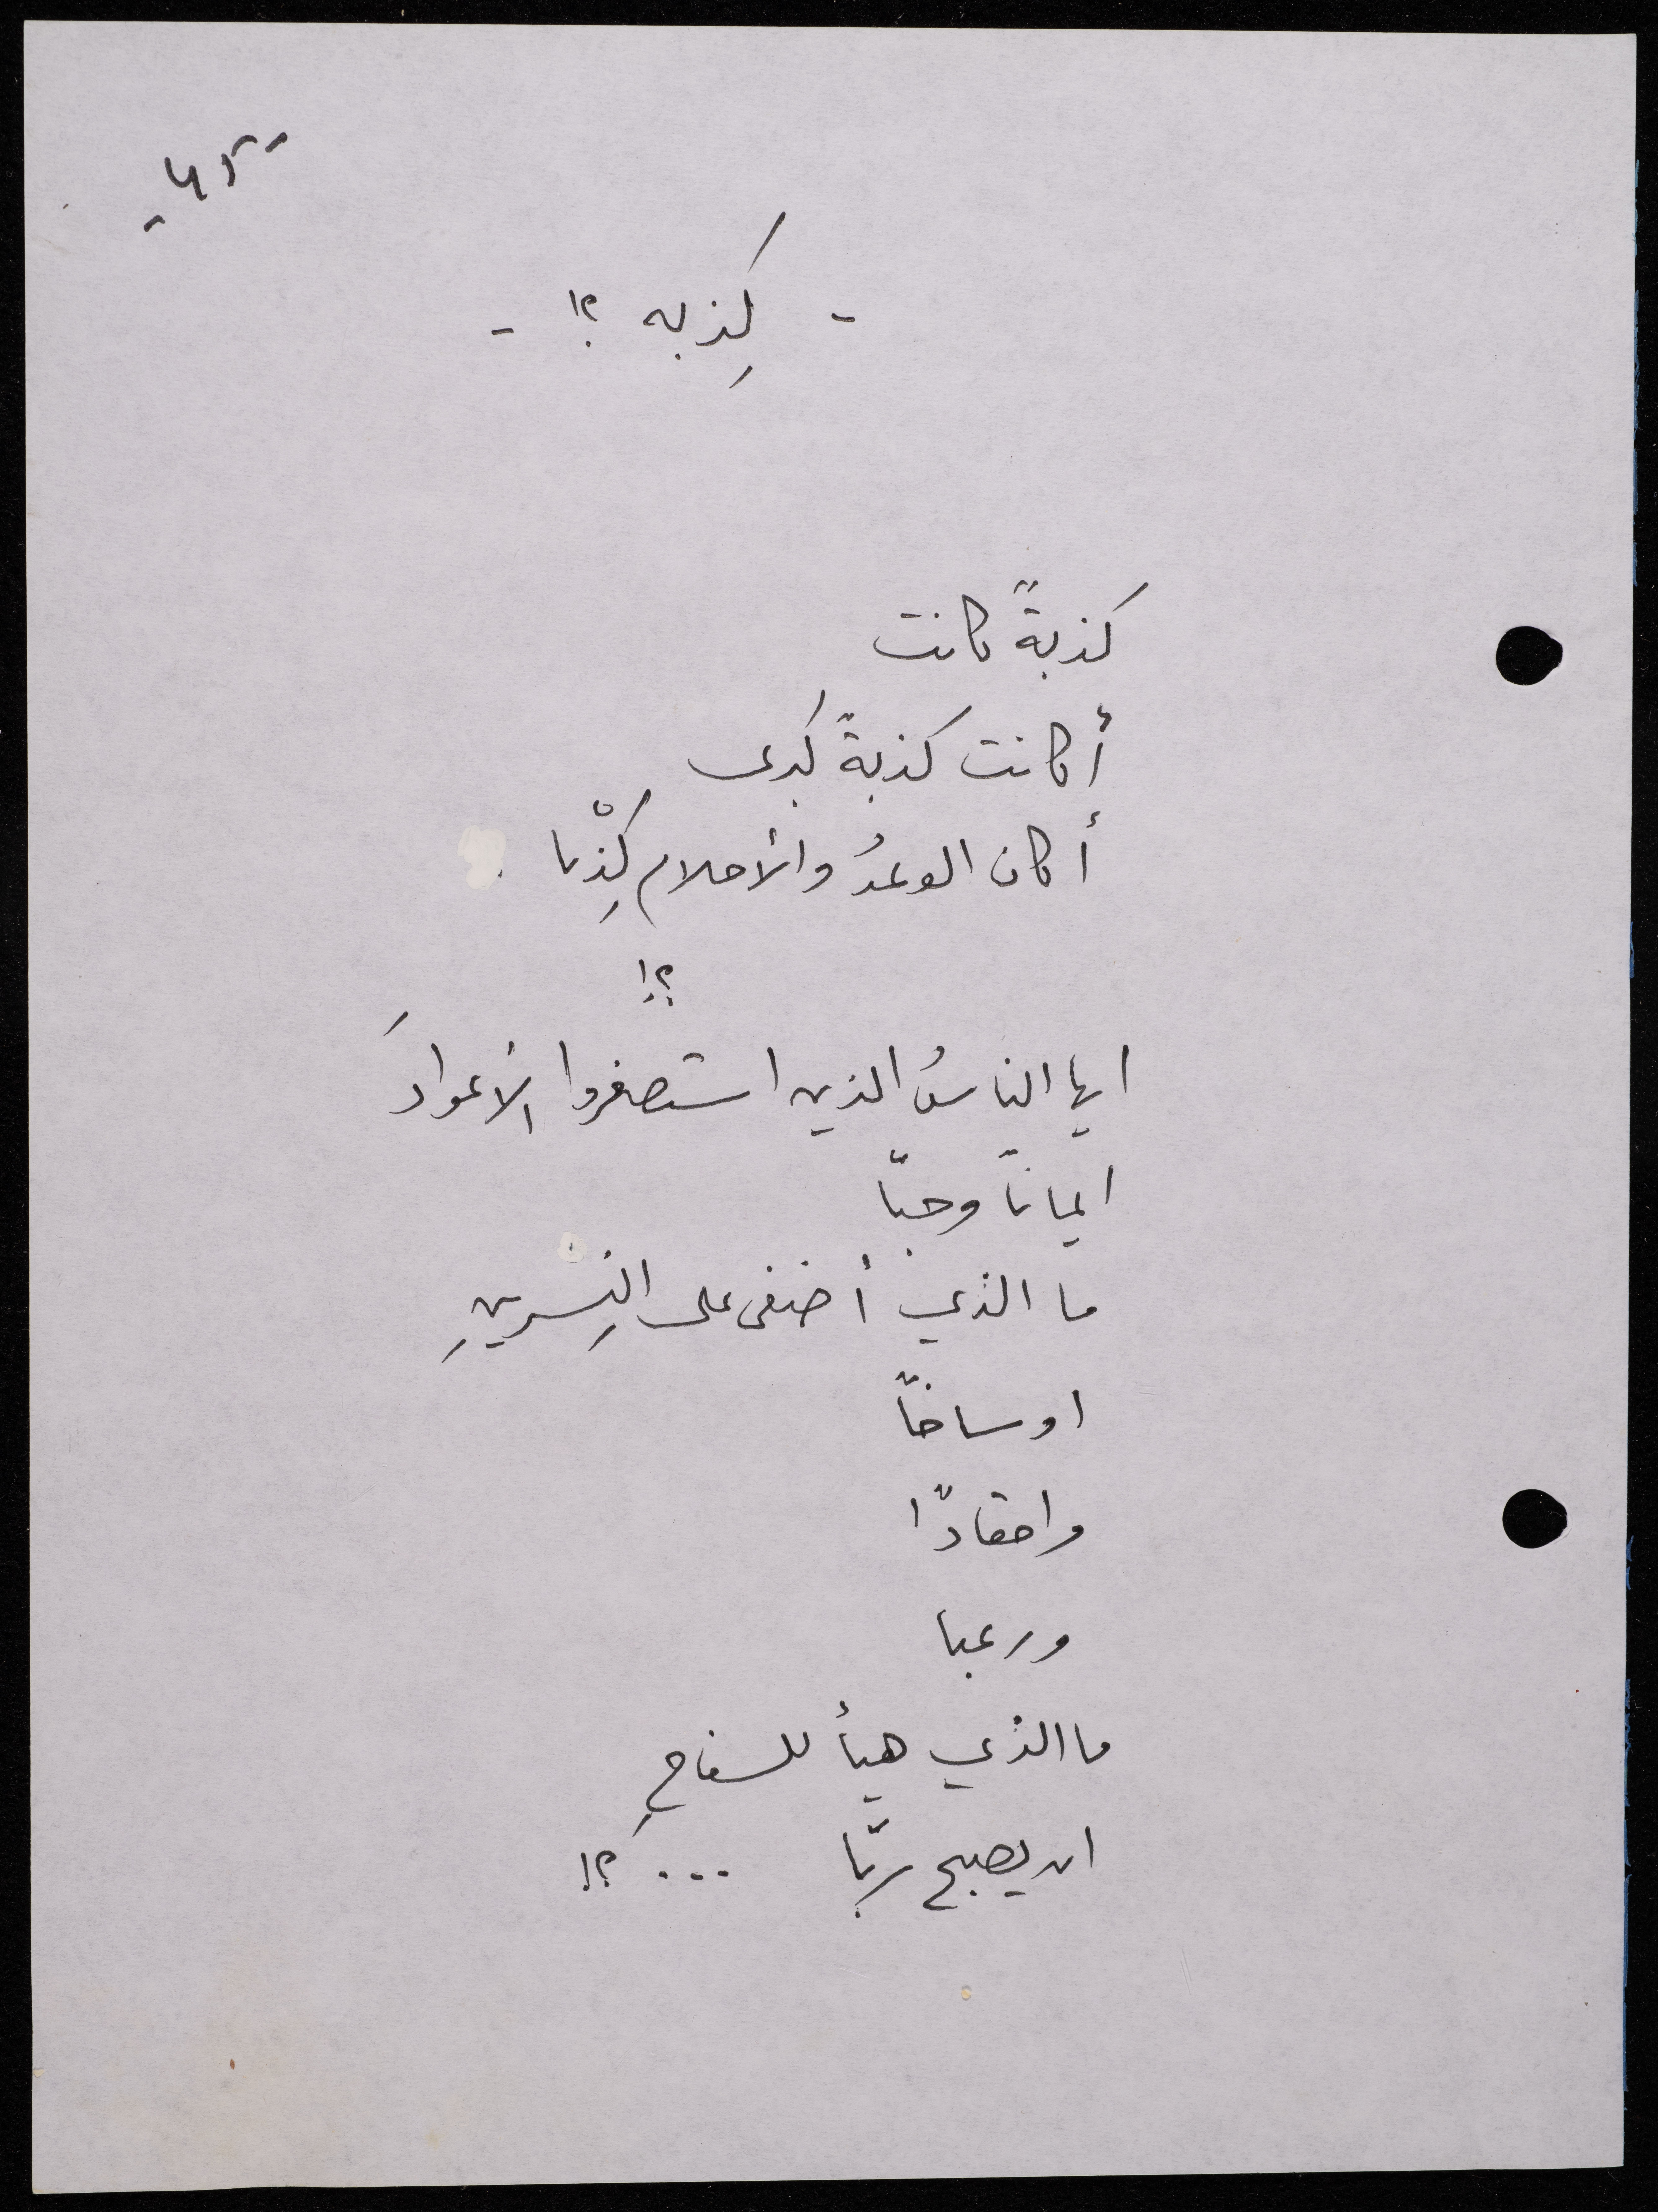 - كِذبه ؟! -
كذبةً كانت
أكانت كذبةً كبرى
أكان الوعدُ والأحلام كِذْبا
؟!
ايها الناسُ الذين استصغروا الأعوادَ
ايمانًا وحبّا
ما الذي أضفى على النِسرينِ
اوساخًا
واحقادًا
ورعبا
ما الذي هيأ للسفاحِ
ان يصبح ربّا ... ؟!